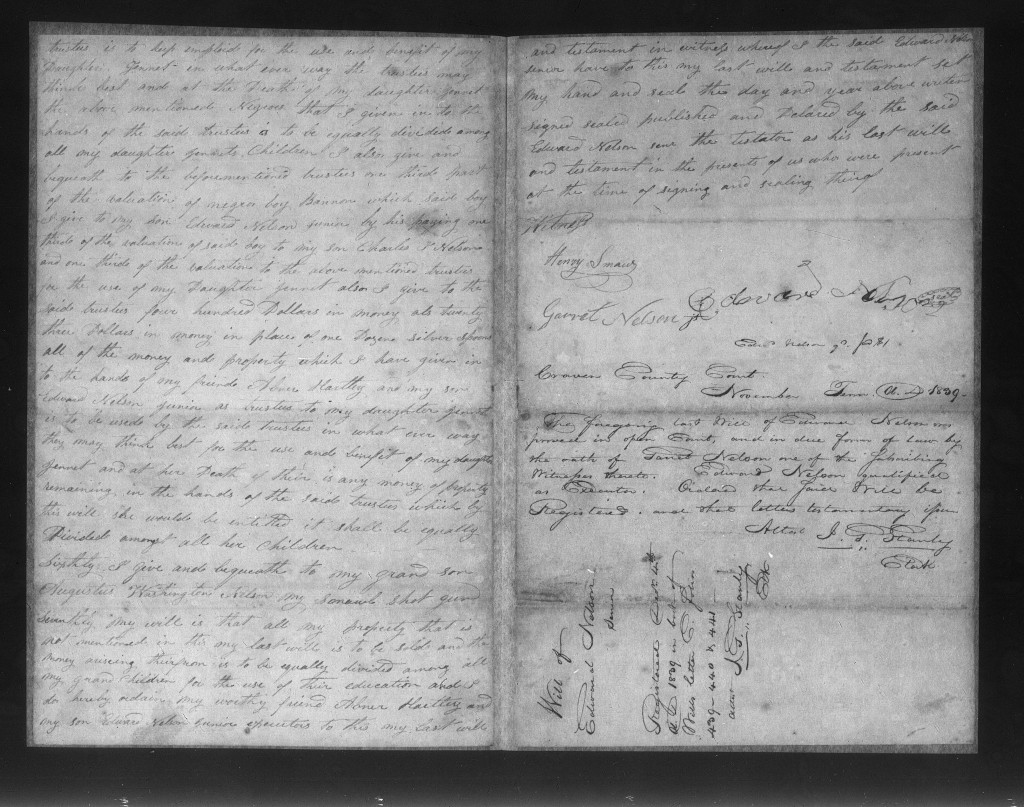 trustus is to keep emploid for the use and benefit of my
Daughter Jennet in what ever way the trusties may
think best and at the Death of My daughter Jennet
the above mentioned Negroes that I given in to the
hands of the said trustus is to be equally divided among
all my daughter Jennets Children I also give and
bequeath to the beforementioned trustus one third part
of the valuation of negro boy Bannon which said boy
I give to my son Edward Nelson junior by his paying one
third of the valuation of said boy to my son Charles Nelson
and one third of the valuation to the above mentioned trustus
for the use of my Daughter Jennet also I give to the
said trustus four hundred Dollars in money also twenty
three Dollars in money in place of one Dozen silver spoons
all of the money and property which I have given in
to the hands of my friend Abner Hartley and my son
Edward Nelson junior as trustus to my daughter Jennet
is to be used by the said trustus in what ever way
they may think best for the use and benefit of my daughter
Jennet and at her Death if their is any money or property
remaining in the hands of the said trustus which by
this will she would be entitled it shall be equally
Divided amongst all her Children
Sixthly I give and bequeath to my grand son
Augustus Washington Nelson my shot gun
Seventhly my will is that all my property that is
not mentioned in this my last will is to be sold and the
money ariseing theirfrom is to be equally divided among all
my grand Children for the use of their education and I
do hereby ordain my worthy friend Abner Hartley and
my son Edward Nelson junior executors to this my last will
and testament in witness whereof I the said Edward Nelson
senior have to this my last will and testament set
my hand and seal the day and year above writen
signed sealed published and Declared by the said
Edward Nelson senr the testator as his last will
and testament in the presents of us who were present
at the time of signing and sealing
Witness
Henry Smaw
Edward Nelson seal
Garrot Nelson jr
Craven County Court
November Term A.D. 1839
The foregoing last Will of Edward Nelson was
proved in open Court, and in due form of Law by
the oath of Garrot Nelson one of the subscribing
Witnesses thereto. Edward Nelson qualified
as Executor. Ordered that said Will be
Registered. and that letters testamentary issue
Attest J. G. Stanly
Clerk
Will of
Edward Nelson
Senior
Registered
A.D. 1839 in book of
Wills letter
439-440 & 441
attest J. G. Stanly
Clk